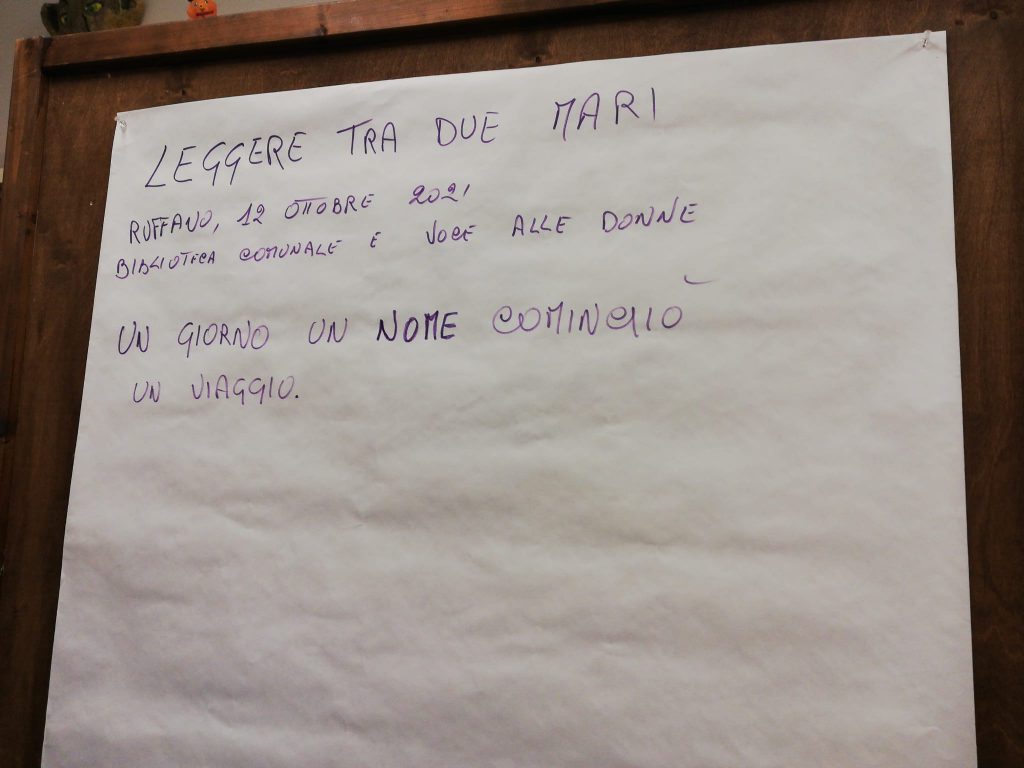 LEGGERE TRA DUE MARI
RUFFANO, 12 OTTOBRE 2021
BIBLIOTECA COMUNALE E VOCE ALLE DONNE
UN GIORNO UN NOME COMINCIÒ
UN VIAGGIO.